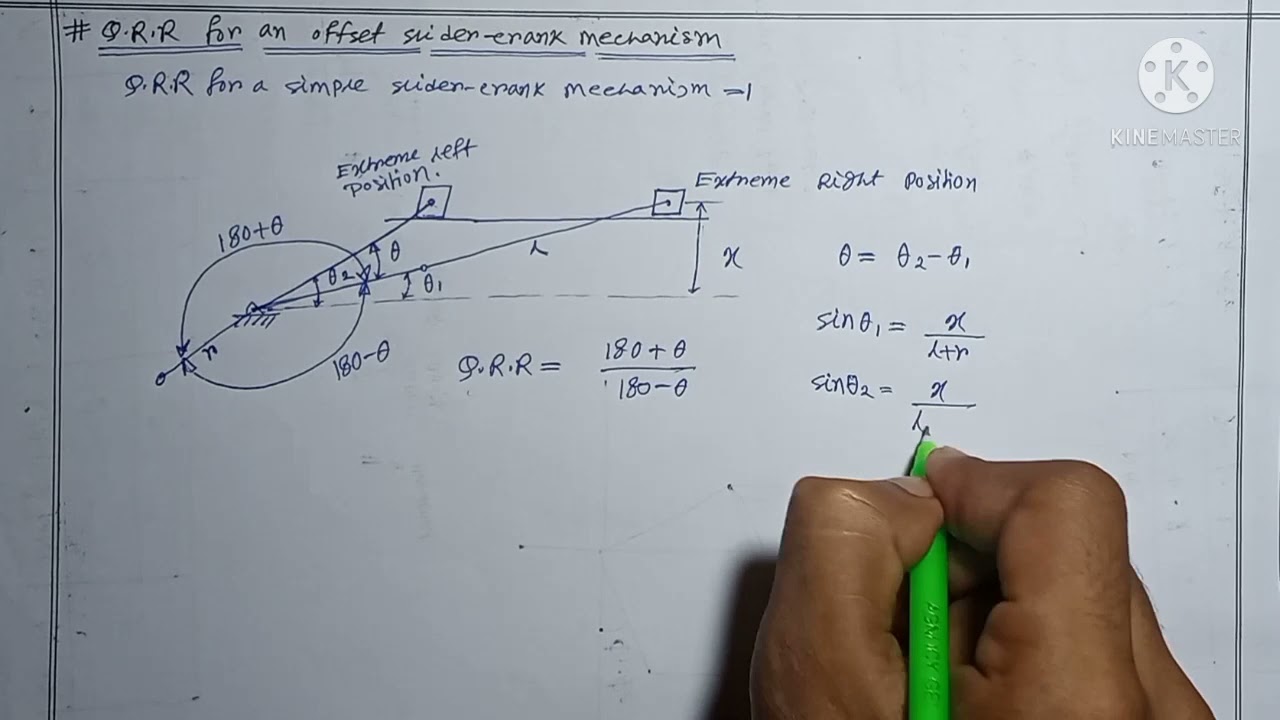 # Q.R.R for an offset slider-crank mechanism
Q.R.R for a simple slider-crank mechanism =1
KINEMASTER
Extreme Left
position.
Extreme Right Position
180+θ
θ
θ2
θ1
l
x
r
180-θ
θ = θ2-θ1
sinθ1 = x/l+r
sinθ2 = x/l
Q.R.R = 180+θ/180-θ